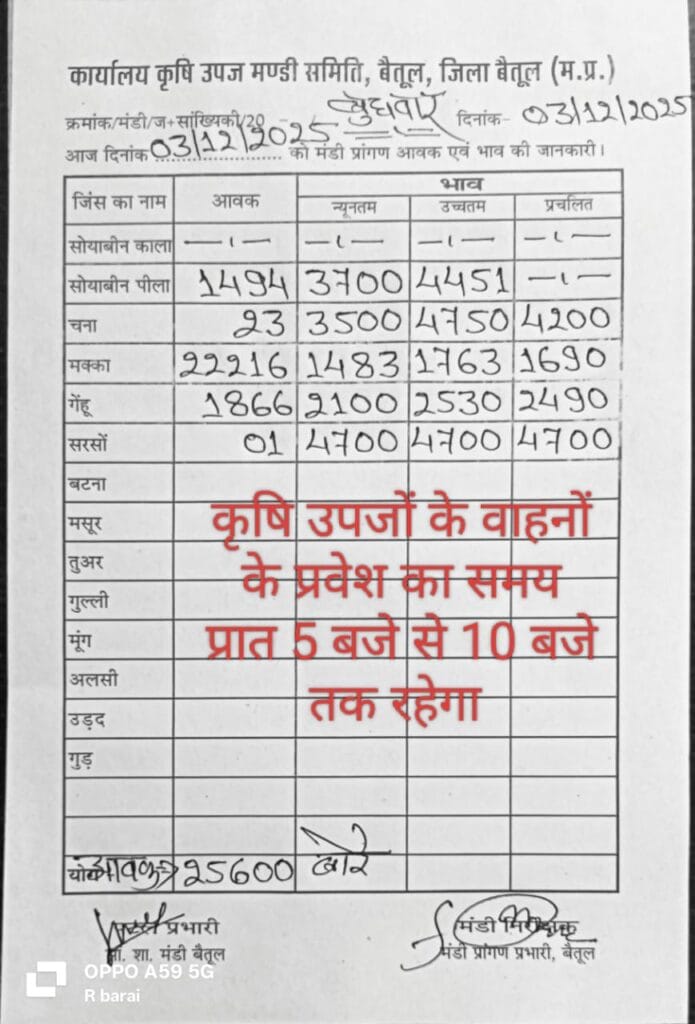 कार्यालय कृषि उपज मण्डी समिति, बैतूल, जिला बैतूल (म.प्र.)
बुधवार
क्रमांक/मंडी/ज+सांख्यिकी/20 दिनांक- 03/12/2025
आज दिनांक 03/12/2025 को मंडी प्रांगण आवक एवं भाव की जानकारी।
जिंस का नाम आवक भाव
न्यूनतम उच्चतम प्रचलित
सोयाबीन काला —,— —,— —,— —,—
सोयाबीन पीला 1494 3700 4451 —,—
चना 23 3500 4750 4200
मक्का 22216 1483 1763 1690
गेंहू 1866 2100 2530 2490
सरसों 01 4700 4700 4700
बटना
मसूर
तुअर
गुल्ली
मूंग
अलसी
उड़द
गुड़
कृषि उपजों के वाहनों
के प्रवेश का समय
प्रात 5 बजे से 10 बजे
तक रहेगा
आवक→ 25600 बोरे
प्रभारी मंडी निरीक्षक
भा. शा. मंडी बैतूल मंडी प्रांगण प्रभारी, बैतूल
OPPO A59 5G
R barai